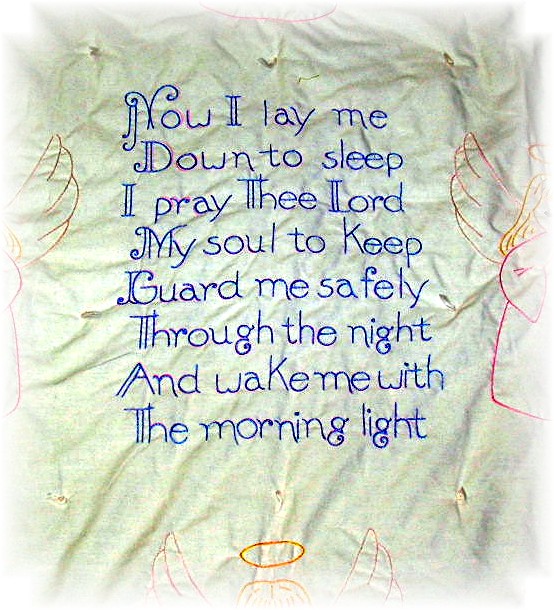 Now I lay me
Down to sleep
I pray Thee Lord
My soul to Keep
Guard me safely
Through the night
And waKe me with
The morning light